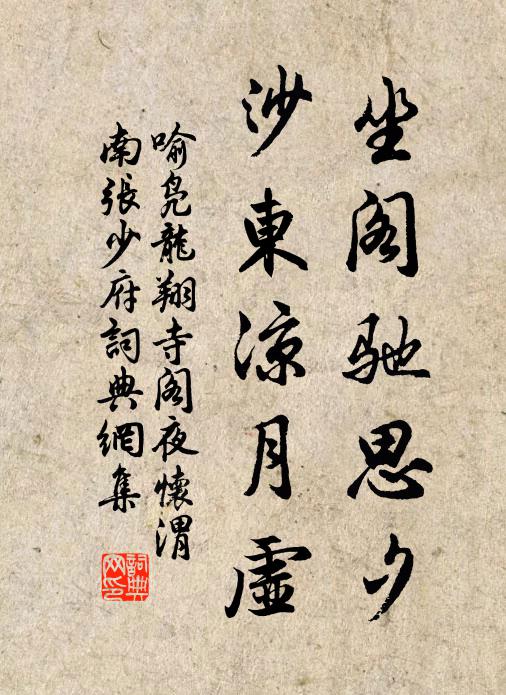 坐阁驰思夕
沙東涼月虛
喻凫龍翔寺阁夜懷渭
南張少府詞典網集
詞典
网印